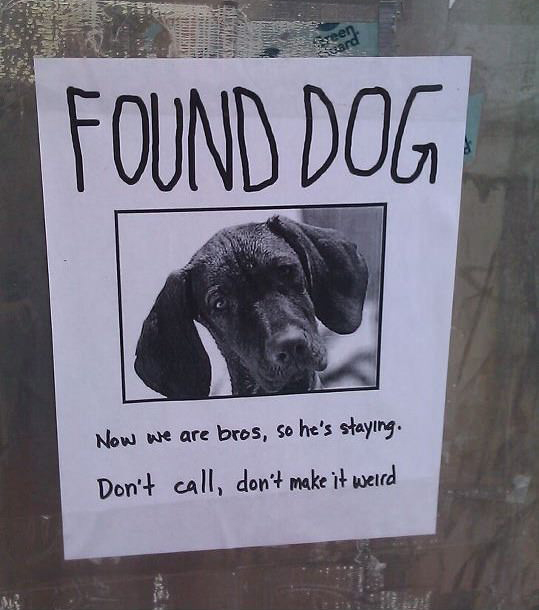 Green
Guard
FOUND DOG
Now we are bros, so he's staying.
Don't call, don't make it weird